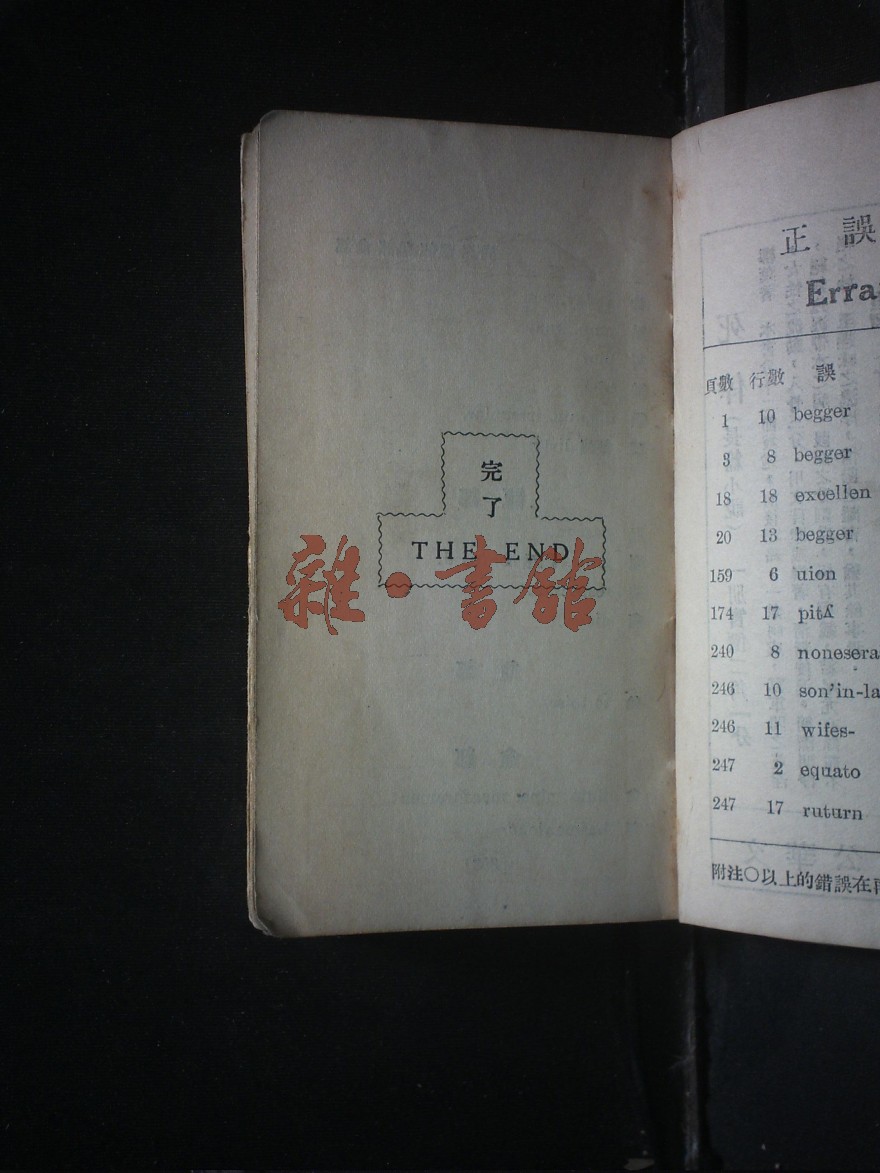 完
了
THE END
雜·書館
正誤
Erra
頁數 行數 誤
1 10 begger
3 8 begger
18 18 excellen
20 13 begger
159 6 uion
174 17 pitʎ
240 8 nonesera
246 10 son'in-la
246 11 wifes-
247 2 equato
247 17 ruturn
附注○以上的錯誤在再